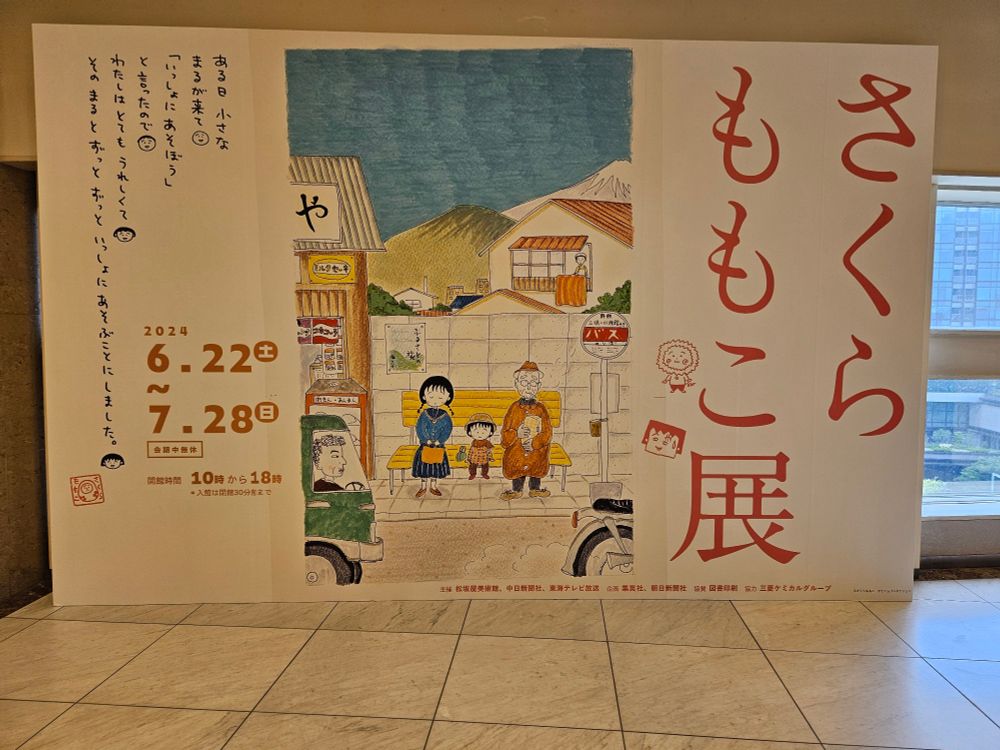 さくら
ももこ展
ある日 小さな
まるが来て
「いっしょに あそぼう」
と言ったので
わたしは とても うれしくて
その まると ずっと ずっと いっしょに あそぶことにしました。
2024
6.22土
〜
7.28日
会期中無休
開館時間 10時から18時
*入館は閉館30分前まで
や
バス
主催 松坂屋美術館、中日新聞社、東海テレビ放送 企画 集英社、朝日新聞社 協賛 図書印刷 協力 三菱ケミカルグループ